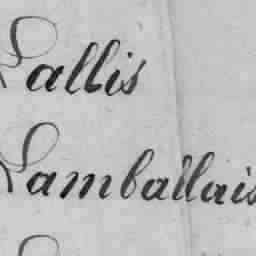 Lallis
Lamballais